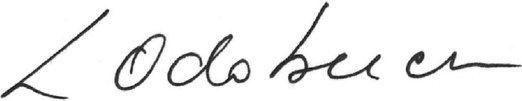 L Odobescu